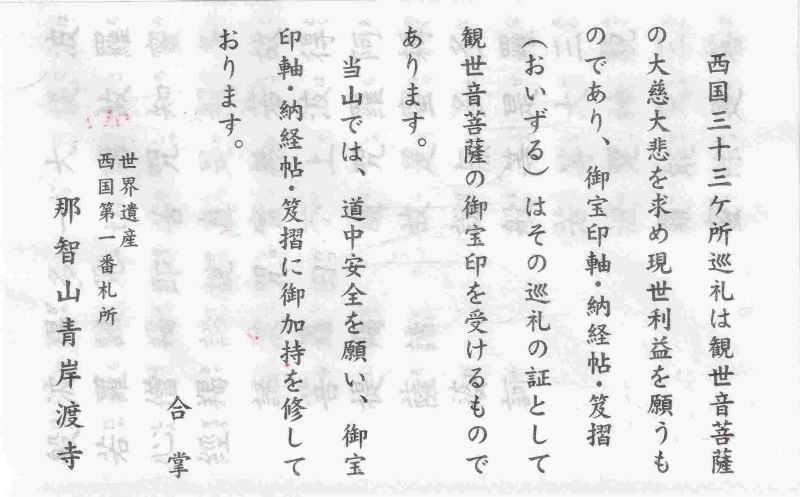 西国三十三ケ所巡礼は観世音菩薩
の大慈大悲を求め現世利益を願うも
のであり、御宝印軸・納経帖・笈摺
(おいずる)はその巡礼の証として
観世音菩薩の御宝印を受けるもので
あります。
当山では、道中安全を願い、御宝
印軸・納経帖・笈摺に御加持を修して
おります。
合掌
世界遺産
西国第一番札所
那智山青岸渡寺